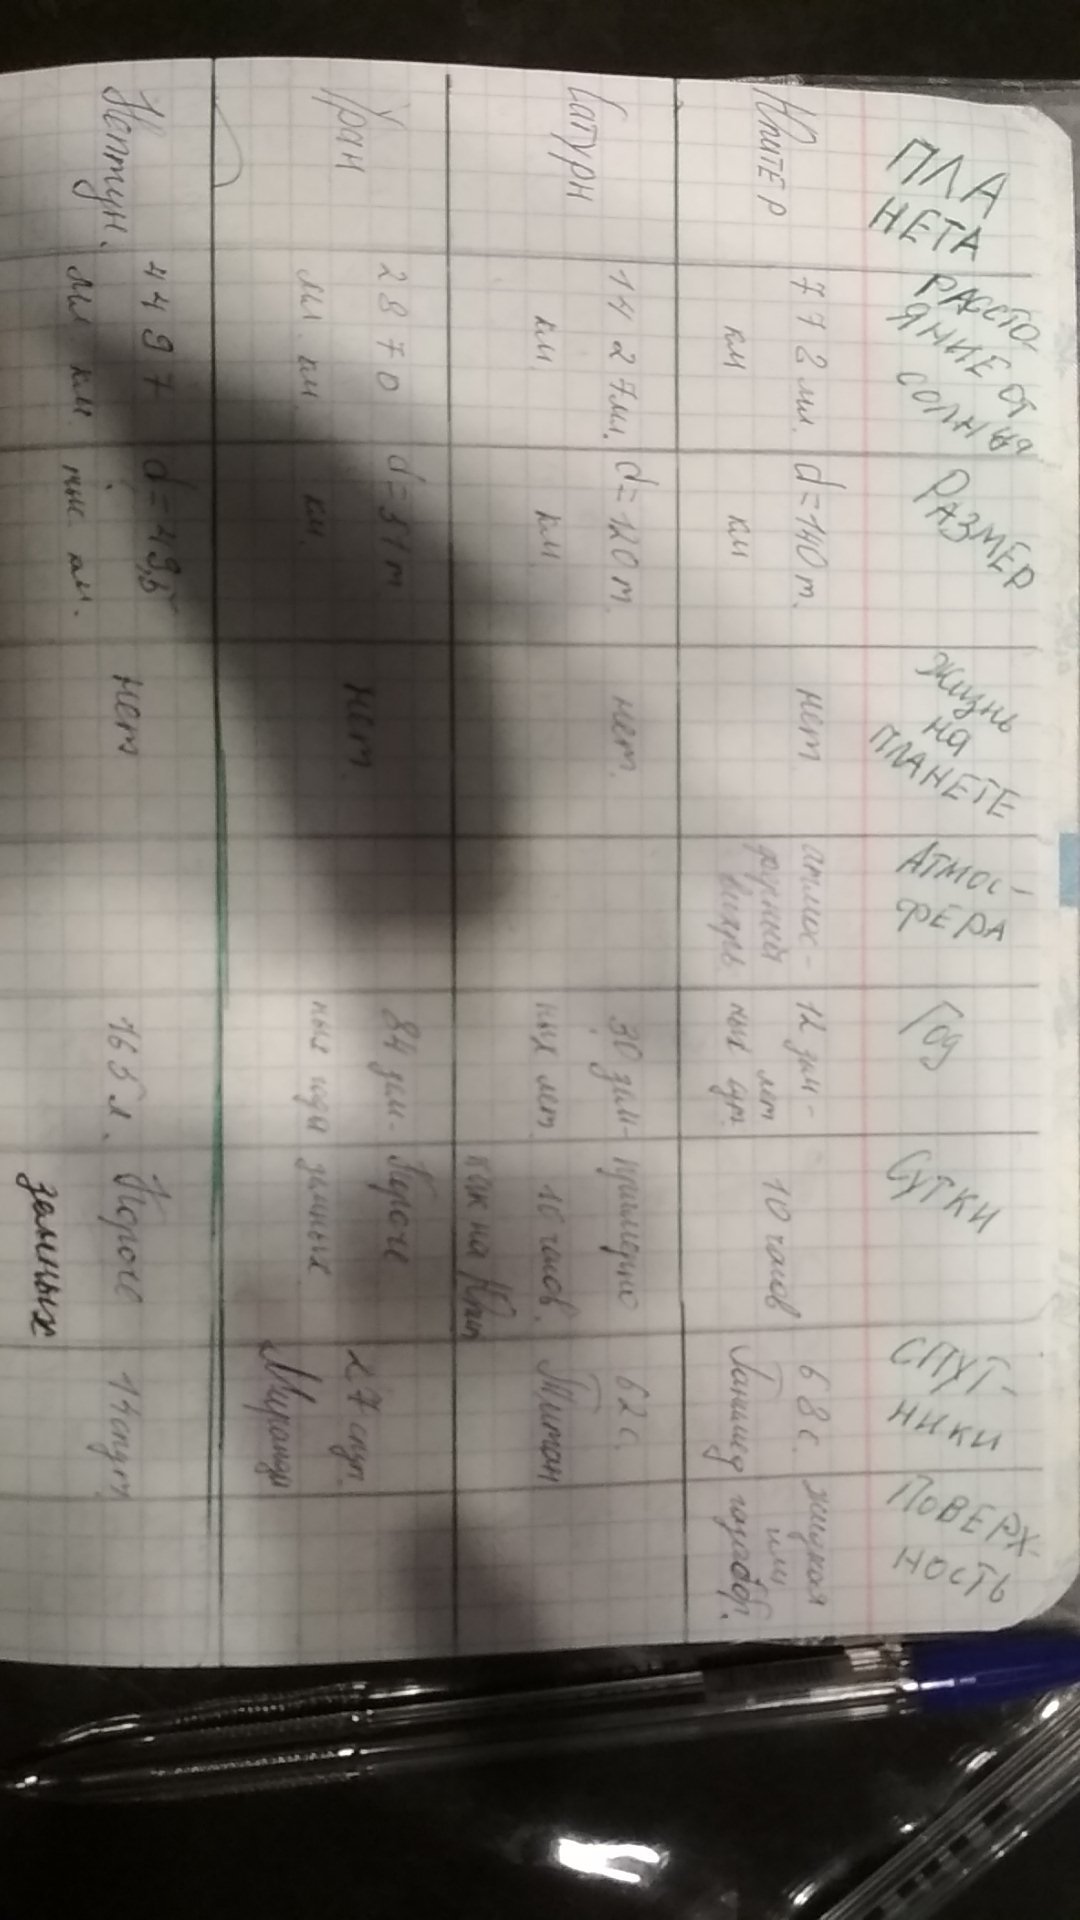 ПЛА
НЕТА
РАССТО-
ЯНИЕ ОТ
СОЛНЦА
РАЗМЕР
Жизнь
на
ПЛАНЕТЕ
АТМОС-
ФЕРА
Год
Сутки
СПУТ-
НИКИ
ПОВЕРХ-
НОСТЬ
Юпитер
772 мил.
км
d=140 т.
км
нет
вихрь
12 зем-
лет
ных сут.
10 часов
68 с.
Ганимед
жидкая
или
газообр.
Сатурн
1427 мл.
км.
d=120 т.
км.
нет.
30 зем-
ных лет.
примерно
10 часов.
как на Юпит
62 с.
Титан
Уран
2870
мл. км.
d=51 т.
км.
нет.
84 зем-
ных года
Короче
земных
27 спут.
Миранда
Нептун.
4497
мл. км.
d=49,5
тыс. км.
нет
165 л.
Короче
земных
14 спут.